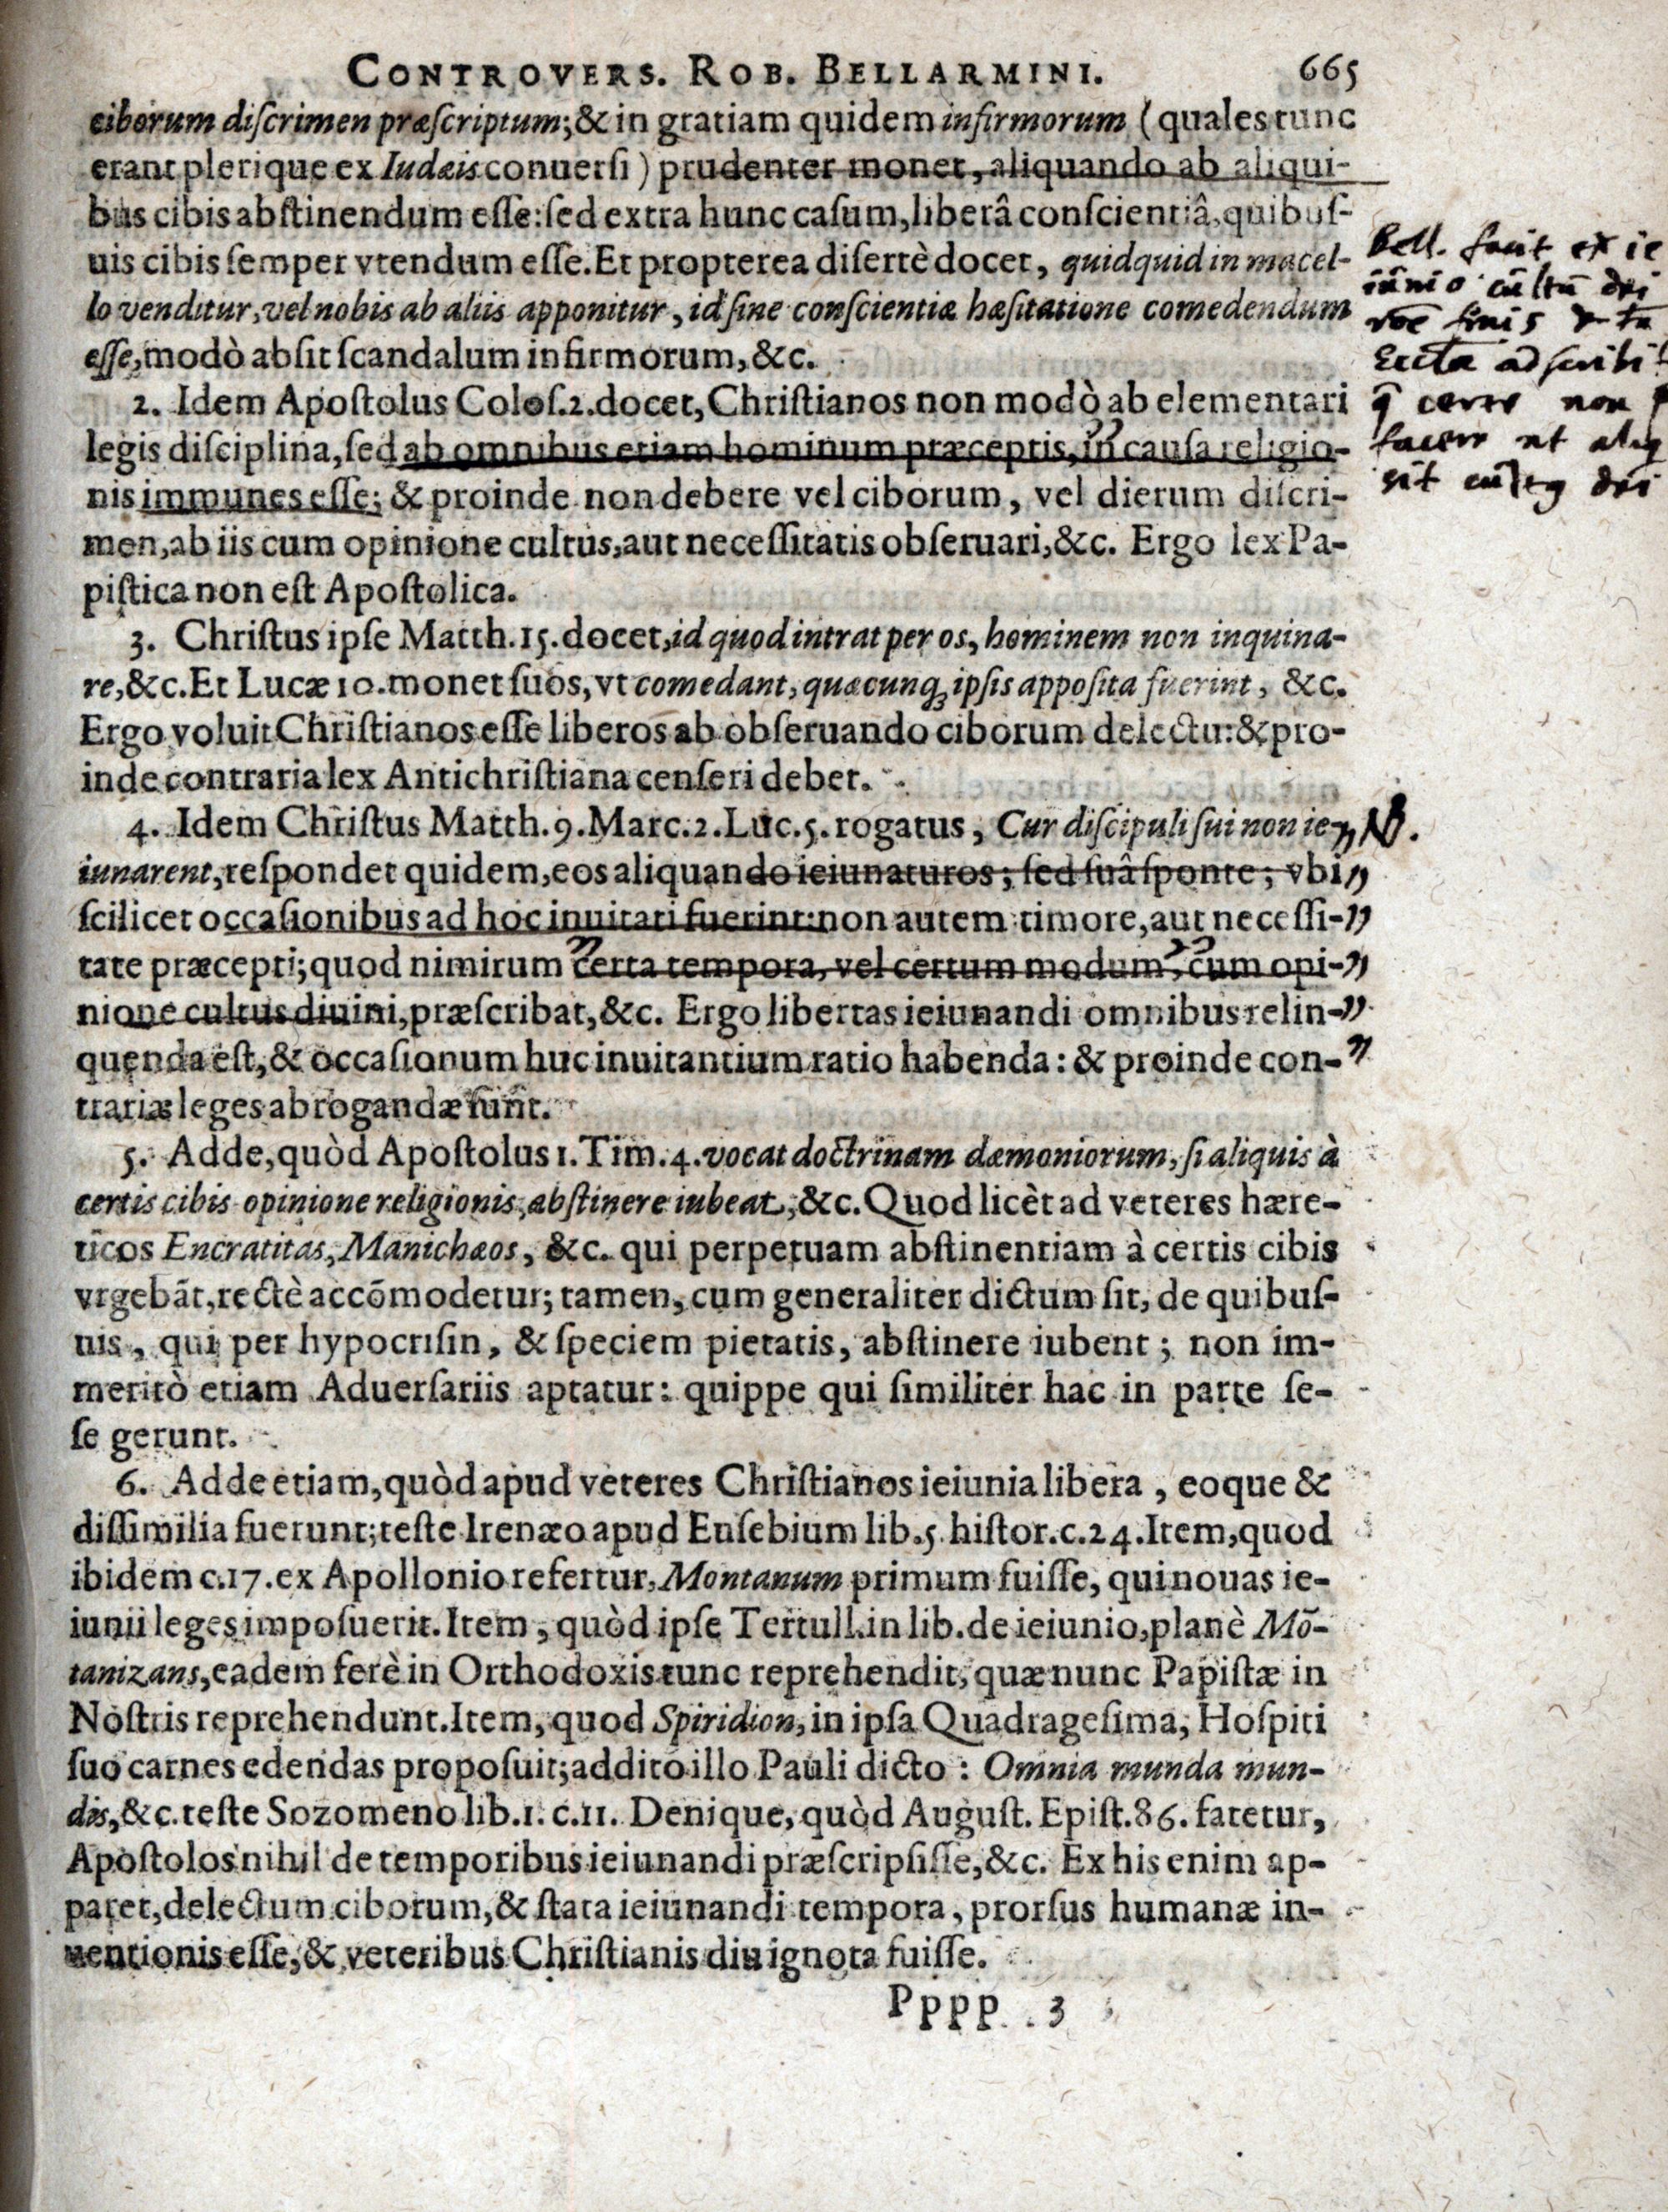 CONTROVERS. ROB. BELLARMINI. 665
ciborum diſcrimen præſcriptum; & in gratiam quidem infirmorum (quales tunc
erant plerique ex Iudæis conuerſi) prudenter monet, aliquando ab aliqui-
bus cibis abſtinendum eſſe: ſed extra hunc caſum, liberâ conſcientiâ, quibuſ-
uis cibis ſemper vtendum eſſe. Et propterea diſertè docet, quidquid in macel-
lo venditur, vel nobis ab aliis apponitur, id ſine conſcientiæ hæſitatione comedendum
eſſe, modò abſit ſcandalum infirmorum, &c.
2. Idem Apoſtolus Coloſ.2. docet, Chriſtianos non modò ab elementari
legis diſciplina, ſed ab omnibus etiam hominum præceptis, in cauſa religio-
nis immunes eſſe; & proinde non debere vel ciborum, vel dierum diſcri-
men, ab iis cum opinione cultus, aut neceſſitatis obſeruari, &c. Ergo lex Pa-
piſtica non eſt Apoſtolica.
3. Chriſtus ipſe Matth.15. docet, id quod intrat per os, hominem non inquina-
re, &c. Et Lucæ 10. monet ſuos, vt comedant, quæcunq; ipſis appoſita fuerint, &c.
Ergo voluit Chriſtianos eſſe liberos ab obſeruando ciborum delectu: & pro-
inde contraria lex Antichriſtiana cenſeri debet.
4. Idem Chriſtus Matth.9. Marc.2. Luc.5. rogatus, Cur diſcipuli ſui non ie-
iunarent, reſpondet quidem, eos aliquando ieiunaturos; ſed ſuâ ſponte; vbi
ſcilicet occaſionibus ad hoc inuitati fuerint: non autem timore, aut neceſſi-
tate præcepti; quod nimirum certa tempora, vel certum modum, cum opi-
nione cultus diuini, præſcribat, &c. Ergo libertas ieiunandi omnibus relin-
quenda eſt, & occaſionum huc inuitantium ratio habenda: & proinde con-
trariæ leges abrogandæ ſunt.
5. Adde, quòd Apoſtolus 1. Tim.4. vocat doctrinam dæmoniorum, ſi aliquis à
certis cibis opinione religionis, abſtinere iubeat, &c. Quod licèt ad veteres hære-
ticos Encratitas, Manichæos, &c. qui perpetuam abſtinentiam à certis cibis
vrgebãt, rectè accõmodetur; tamen, cum generaliter dictum ſit, de quibuſ-
uis, qui per hypocriſin, & ſpeciem pietatis, abſtinere iubent; non im-
meritò etiam Aduerſariis aptatur: quippe qui ſimiliter hac in parte ſe-
ſe gerunt.
6. Adde etiam, quòd apud veteres Chriſtianos ieiunia libera, eoque &
diſſimilia fuerunt; teſte Irenæo apud Euſebium lib.5. hiſtor.c.24. Item, quod
ibidem c.17. ex Apollonio refertur, Montanum primum fuiſſe, qui nouas ie-
iunii leges impoſuerit. Item, quòd ipſe Tertull. in lib. de ieiunio, planè Mõ-
tanizans, eadem ferè in Orthodoxis tunc reprehendit, quæ nunc Papiſtæ in
Noſtris reprehendunt. Item, quod Spiridion, in ipſa Quadrageſima, Hoſpiti
ſuo carnes edendas propoſuit; addito illo Pauli dicto: Omnia munda mun-
dis, &c. teſte Sozomeno lib.1. c.11. Denique, quòd Auguſt. Epiſt.86. fatetur,
Apoſtolos nihil de temporibus ieiunandi præſcripſiſſe, &c. Ex his enim ap-
paret, delectum ciborum, & ſtata ieiunandi tempora, prorſus humanæ in-
uentionis eſſe, & veteribus Chriſtianis diu ignota fuiſſe.
Pppp 3
Bell. facit ex ie
iũnio cũltũ dei
finis
adscribi
non
facere ut aliq
sit dei